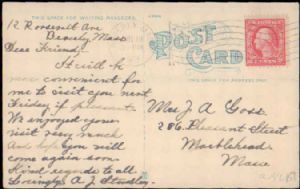 THIS SPACE FOR WRITING MESSAGES.
POST CARD
THIS SPACE FOR ADDRESS ONLY.
12 Roosevelt Ave
Beverly, Mass
Dear Friend:
It will be
more convenient for
me to visit you next
Friday if pleasant.
We enjoyed your
visit very much
And hope you will
come again soon.
Kind regards to all
Lovingly, A J Standley
Mrs J A Goss
286 Pleasant Street
Marblehead
Mass